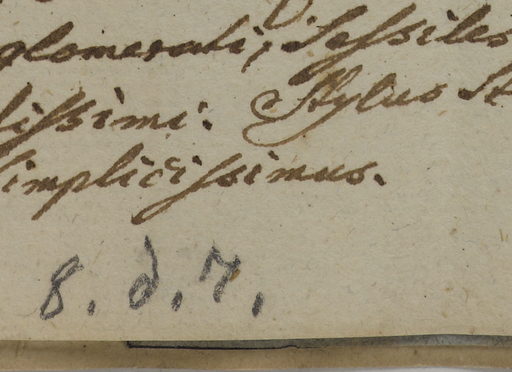 glomerati, Sessiles
tissimi. Stylus St
simplicissimus.
8. d. 7.